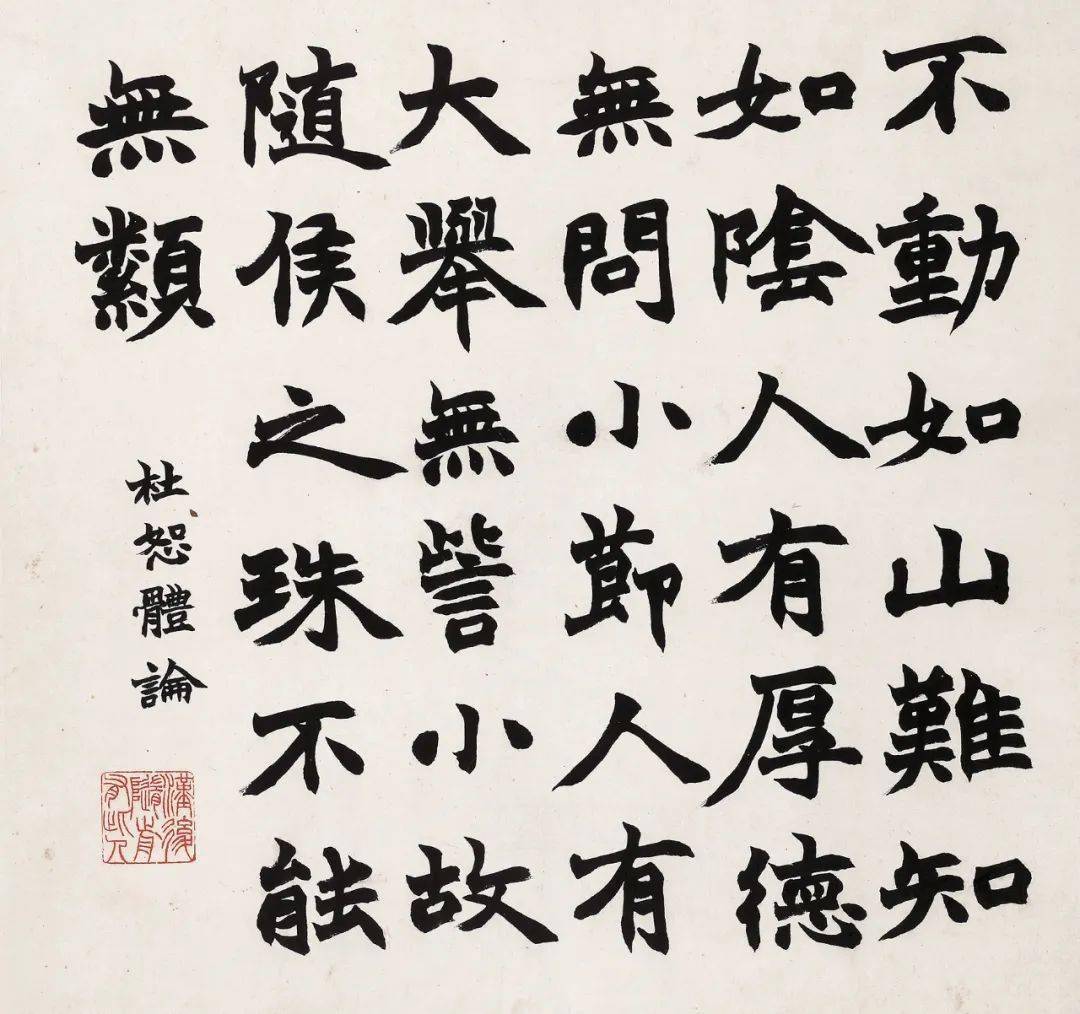 不動如山難知
如陰人有厚德
無問小節人有
大舉無訾小故
隨侯之珠不能
無纇
杜恕體論